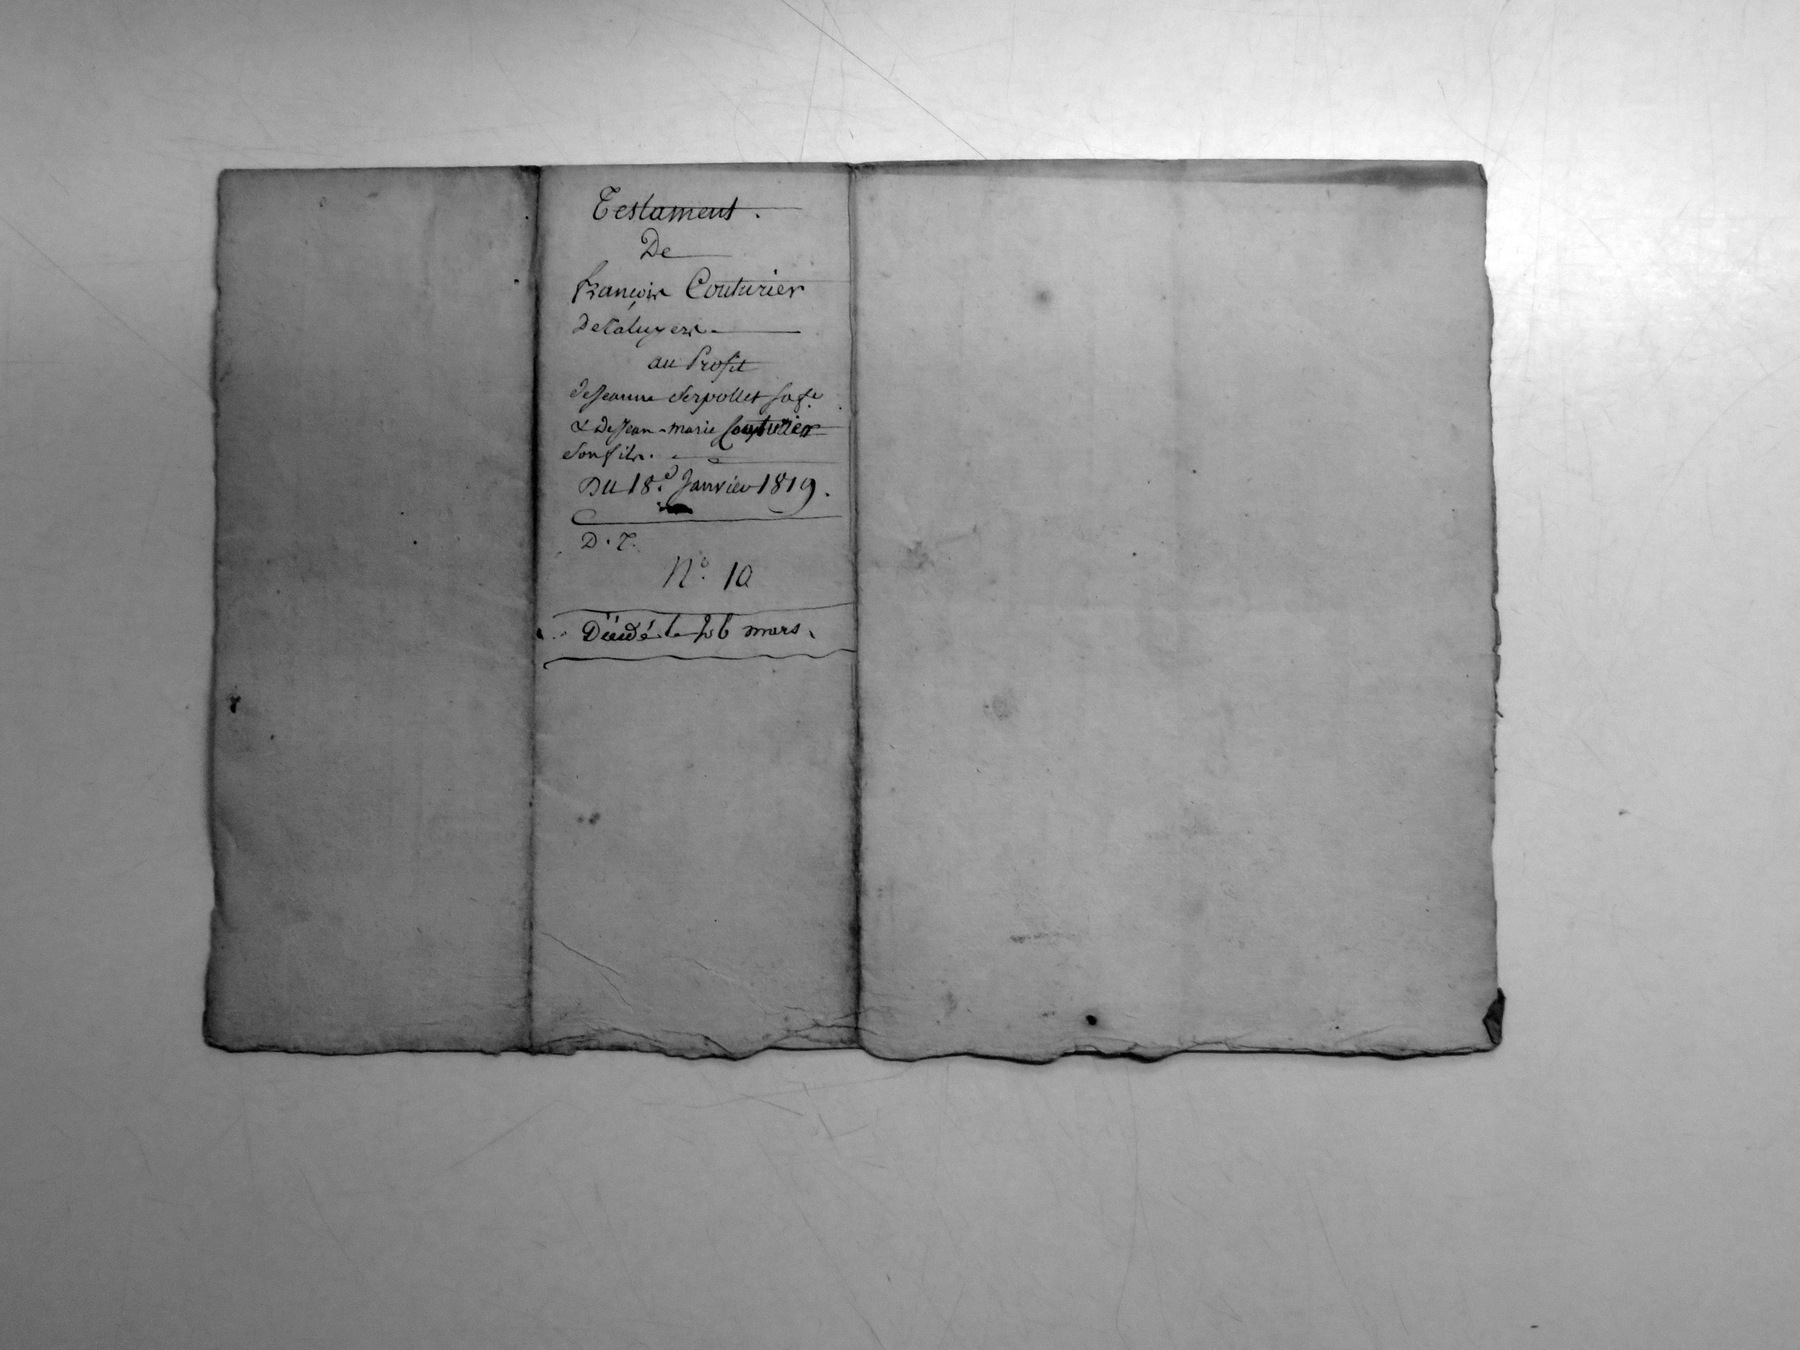 Testament.
De
françois Couturier
De Caluyere
au Profit
de Jeanne Serpollet sa fe.
& De Jean-marie Couturier
Son fils.
Du 18e. Janvier 1819.
D. T.
N°. 10
Décédé le 26 mars.